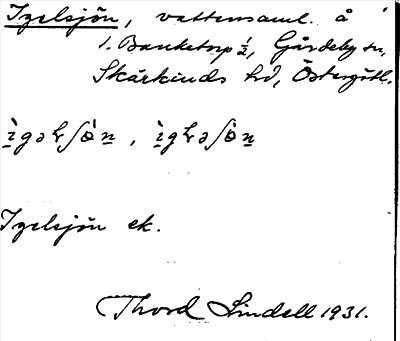 Igelsjön, vattensaml. å
1. Banketorp ½, Gårdeby sn,
Skärkinds hd, Östergötl.
Igelsjön ek.
Thord Lindell 1931.